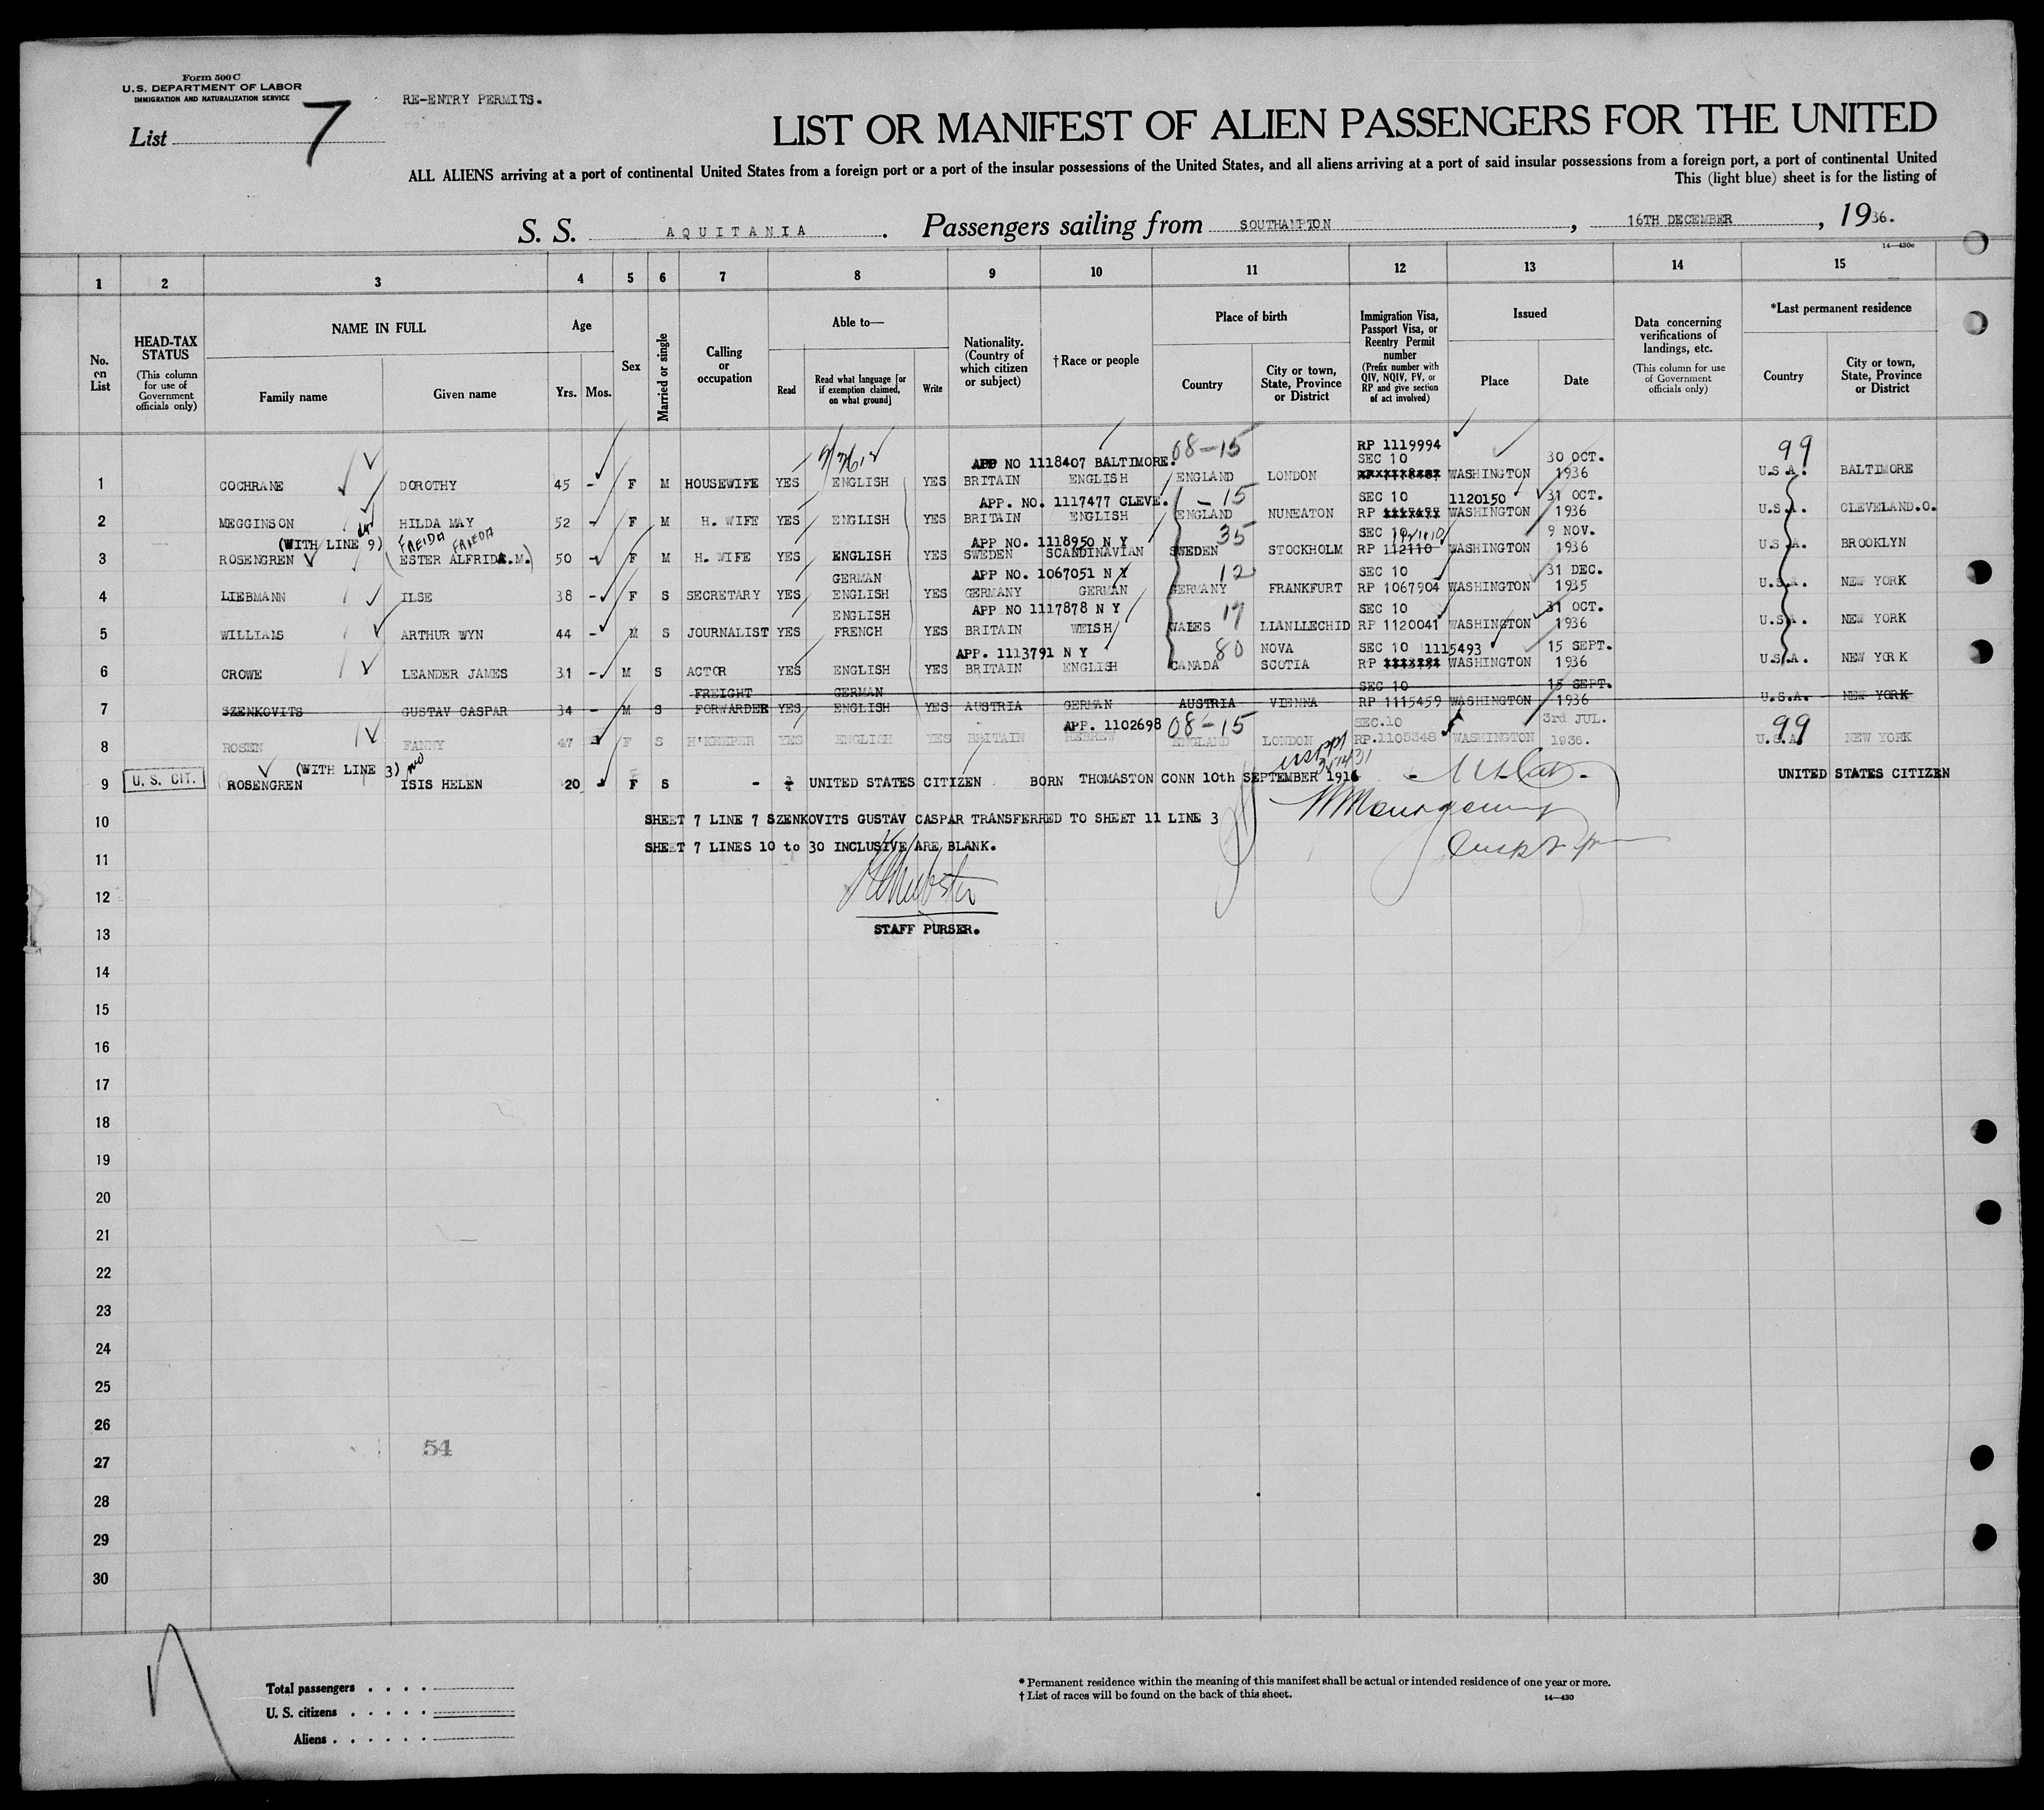 Form 500 C
U.S. DEPARTMENT OF LABOR
IMMIGRATION AND NATURALIZATION SERVICE
RE-ENTRY PERMITS.
List 7
LIST OR MANIFEST OF ALIEN PASSENGERS FOR THE UNITED
ALL ALIENS arriving at a port of continental United States from a foreign port or a port of the insular possessions of the United States, and all aliens arriving at a port of said insular possessions from a foreign port, a port of continental United
This (light blue) sheet is for the listing of
S. S. AQUITANIA. Passengers sailing from SOUTHAMPTON, 16TH DECEMBER, 1936.
14—430c
1 2 3 4 5 6 7 8 9 10 11 12 13 14 15
No. on List
HEAD-TAX STATUS (This column for use of Government officials only)
NAME IN FULL
Family name
Given name
Age
Yrs. Mos.
Sex
Married or single
Calling or occupation
Able to—
Read
Read what language [or if exemption claimed, on what ground]
Write
Nationality. (Country of which citizen or subject)
† Race or people
Place of birth
Country
City or town, State, Province or District
Immigration Visa, Passport Visa, or Reentry Permit number (Prefix number with QIV, NQIV, PV, or RP and give section of act involved)
Issued
Place
Date
Data concerning verifications of landings, etc. (This column for use of Government officials only)
*Last permanent residence
Country
City or town, State, Province or District
RP 1119994
APP NO 1118407 BALTIMORE. 08-15 SEC 10 30 OCT. 99
1 COCHRANE DOROTHY 45 - F M HOUSEWIFE YES ENGLISH YES BRITAIN ENGLISH ENGLAND LONDON WASHINGTON 1936 U.S.A. BALTIMORE
APP. NO. 1117477 CLEVE. - 15 SEC 10 1120150 31 OCT.
2 MEGGINSON HILDA MAY 52 - F M H. WIFE YES ENGLISH YES BRITAIN ENGLISH ENGLAND NUNEATON RP WASHINGTON 1936 U.S.A. CLEVELAND.O.
(WITH LINE 9) FREIDA FRIEDA APP NO. 1118950 N Y 35 SEC 10 9 NOV.
3 ROSENGREN (ESTER ALFRIDA.M.) 50 - F M H. WIFE YES ENGLISH YES SWEDEN SCANDINAVIAN SWEDEN STOCKHOLM RP 112110 WASHINGTON 1936 U.S.A. BROOKLYN
GERMAN APP NO. 1067051 N Y 12 SEC 10 31 DEC.
4 LIEBMANN ILSE 38 - F S SECRETARY YES ENGLISH YES GERMANY GERMAN GERMANY FRANKFURT RP 1067904 WASHINGTON 1935 U.S.A. NEW YORK
ENGLISH APP NO 1117878 N Y 17 SEC 10 31 OCT.
5 WILLIAMS ARTHUR WYN 44 - M S JOURNALIST YES FRENCH YES BRITAIN WELSH WALES LLANLLECHID RP 1120041 WASHINGTON 1936 U.S.A. NEW YORK
APP. 1113791 N Y 80 NOVA SEC 10 1115493 15 SEPT.
6 CROWE LEANDER JAMES 31 - M S ACTOR YES ENGLISH YES BRITAIN ENGLISH CANADA SCOTIA RP WASHINGTON 1936 U.S.A. NEW YORK
FREIGHT GERMAN SEC 10 15 SEPT.
7 SZENKOVITS GUSTAV CASPAR 34 - M S FORWARDER YES ENGLISH YES AUSTRIA GERMAN AUSTRIA VIENNA RP 1115459 WASHINGTON 1936 U.S.A. NEW YORK
APP. 1102698 08-15 SEC.10 3rd JUL. 99
8 ROSEN FANNY 47 - F S H'KEEPER YES ENGLISH YES BRITAIN HEBREW ENGLAND LONDON RP.1105348 WASHINGTON 1936. U.S.A. NEW YORK
(WITH LINE 3)
9 U. S. CIT. ROSENGREN ISIS HELEN 20 - F S - UNITED STATES CITIZEN BORN THOMASTON CONN 10th SEPTEMBER 1916 UNITED STATES CITIZEN
10 SHEET 7 LINE 7 SZENKOVITS GUSTAV CASPAR TRANSFERRED TO SHEET 11 LINE 3
SHEET 7 LINES 10 to 30 INCLUSIVE ARE BLANK.
11
12
13 STAFF PURSER.
14
15
16
17
18
19
20
21
22
23
24
25
26
54
27
28
29
30
Total passengers
U. S. citizens
Aliens
* Permanent residence within the meaning of this manifest shall be actual or intended residence of one year or more.
† List of races will be found on the back of this sheet. 14—430